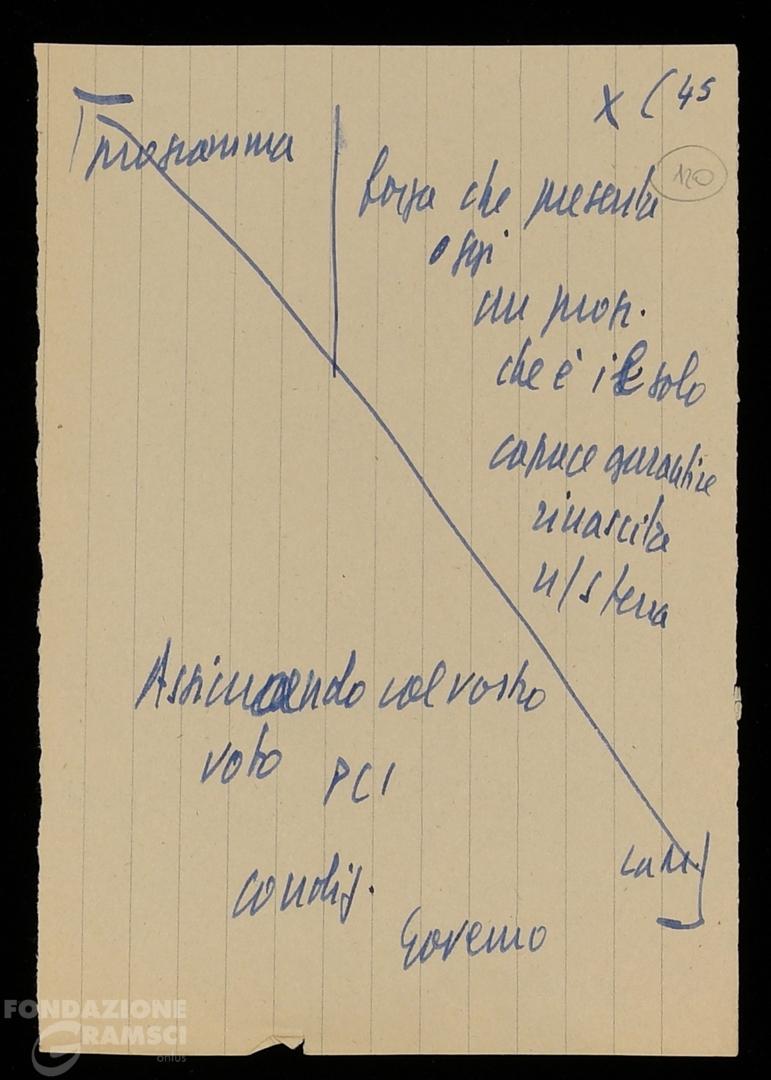 X (45
120
programma
forza che presenta
oggi
un progr.
che è il solo
capace garantire
rinascita
n/s terra
Assicurando col vostro
voto PCI
condiz.
Governo
FONDAZIONE
GRAMSCI
onlus